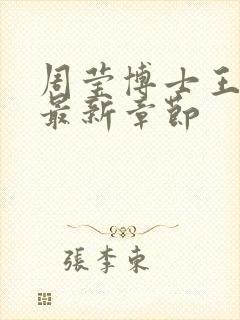 周莹博士王
最新章節
張李東